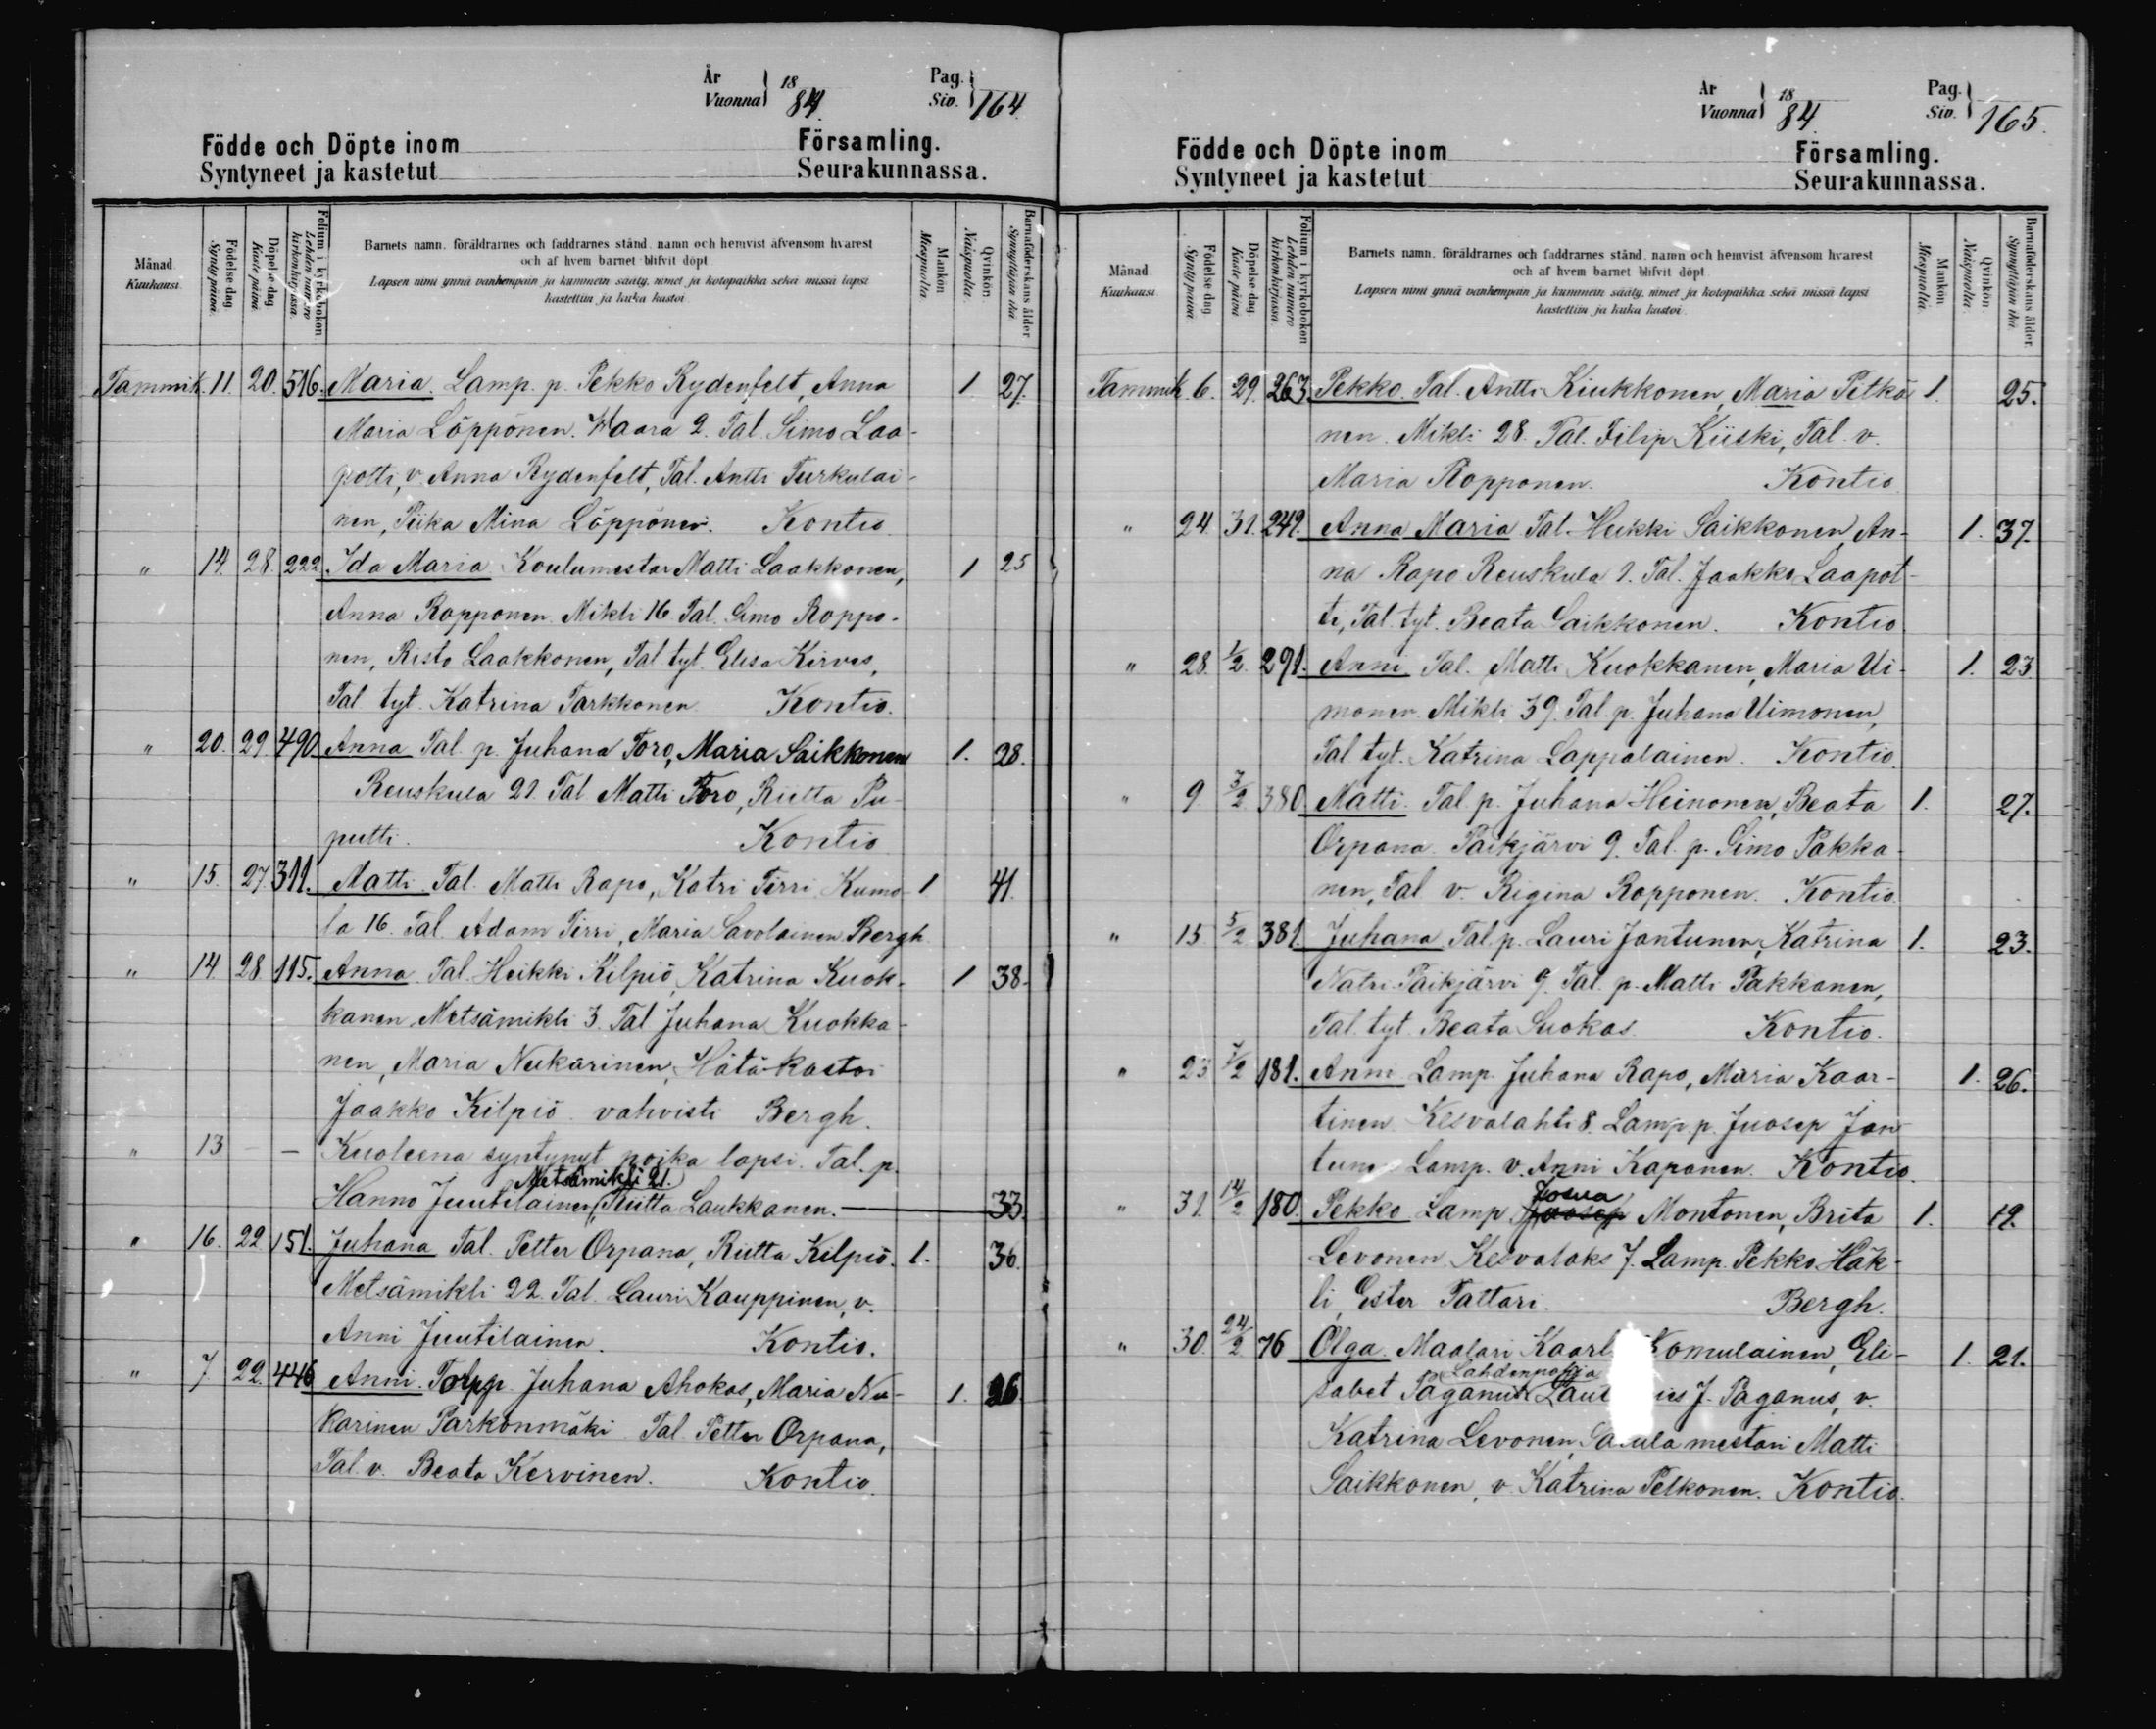 År
Vuonna
18
84.
Pag.
Siv.
164
Födde och Döpte inom Församling.
Syntyneet ja kastetut Seurakunnassa.
Månad.
Kuukausi.
Födelse dag.
Synty päivä.
Döpelse dag.
Kaste päivä.
Folium i kyrkobokon
Lehden numero
kirkonkirjassa.
Barnets namn, föräldrarnes och faddrarnes stånd, namn och hemvist äfvensom hvarest
och af hvem barnet blifvit döpt.
Lapsen nimi ynnä vanhempain ja kummein sääty, nimet ja kotopaikka sekä missä lapsi
kastettiin ja kuka kastoi.
Mankön.
Miespuolia.
Qvinkön.
Naispuolia.
Barnaföderskans ålder.
Synnyttäjän ikä.
Tammik. 11. 20. 516. Maria. Lamp. p. Pekko Rydenfelt, Anna 1 27.
Maria Löppönen. Waara 2. Tal. Simo Laa-
potti, v. Anna Rydenfelt, Tal. Antti Turkulai-
nen, Piika Mina Löppönen. Kontio
" 14. 28. 222 Ida Maria Koulumestar Matti Laakkonen, 1 25
Anna Ropponen. Mikli 16 Tal. Simo Roppo-
nen, Risto Laakkonen, Tal tyt. Elisa Kirves,
Tal tyt. Katrina Tarkkonen. Kontio.
" 20. 29. 490 Anna Tal. p. Juhana Toro, Maria Saikkonen 1. 28.
Reuskula 21. Tal Matti Toro, Riitta Pu-
putti. Kontio
" 15. 27. 311. Matti Tal. Matti Rapo, Katri Tirri Kumo- 1 41.
la 16. Tal. Adam Tirri, Maria Savolainen Bergh
" 14. 28 115. Anna Tal. Heikki Kilpiö, Katrina Kuok- 1 38.
kanen, Metsämikli 3. Tal Juhana Kuokka-
nen, Maria Nukarinen, Hätä-kastoi
Jaakko Kilpiö vahvisti Bergh.
" 13 — — Kuoleena syntynyt poika lapsi. Tal. p.
Metsämikli 21.
Hanno Juutilainen, Riitta Laukkanen. 33.
" 16. 22 151. Juhana Tal. Petter Orpana, Riitta Kilpiö. 1. 36.
Metsämikli 22. Tal. Lauri Kauppinen, v.
Anni Juutilainen. Kontio.
" 7 22. 446 Anni. Torpp. Juhana Ahokas, Maria Nu- 1. 26
karinen Parkonmäki Tal. Petter Orpana,
Tal. v. Beata Kervinen. Kontio.
År
Vuonna
18
84.
Pag.
Siv.
165.
Födde och Döpte inom Församling.
Syntyneet ja kastetut Seurakunnassa.
Månad.
Kuukausi.
Födelse dag.
Synty päivä.
Döpelse dag.
Kaste päivä.
Folium i kyrkobokon
Lehden numero
kirkonkirjassa.
Barnets namn, föräldrarnes och faddrarnes stånd, namn och hemvist äfvensom hvarest
och af hvem barnet blifvit döpt.
Lapsen nimi ynnä vanhempain ja kummein sääty, nimet ja kotopaikka sekä missä lapsi
kastettiin ja kuka kastoi.
Mankön.
Miespuolia.
Qvinkön.
Naispuolia.
Barnaföderskans ålder.
Synnyttäjän ikä.
Tammik. 6. 29. 263. Pekko. Tal. Antti Kiukkonen, Maria Pitkä 1. 25.
nen. Mikli 28. Tal. Filip Kiiski, Tal. v.
Maria Ropponen. Kontio
" 24. 31. 249. Anna Maria Tal. Heikki Saikkonen, An- 1. 37.
na Rapo Reuskula 1. Tal. Jaakko Laapot-
ti, Tal. tyt. Beata Saikkonen. Kontio.
" 28. 1/2. 291. Anni Tal. Matti Kuokkanen, Maria Ui- 1. 23
monen. Mikli 39. Tal. p. Juhana Uimonen,
Tal tyt. Katrina Lappalainen. Kontio.
" 9 3/2 380. Matti. Tal. p. Juhana Heinonen, Beata 1. 27.
Orpana. Paikjärvi 9. Tal. p. Simo Pakka-
nen, Tal v. Rigina Ropponen. Kontio.
" 15 5/2 381. Juhana Tal. p. Lauri Jantunen, Katrina 1. 23.
Natri. Paikjärvi 9. Tal. p. Matti Pakkanen,
Tal. tyt. Beata Suokas. Kontio.
" 23 7/2 181. Anni Lamp. Juhana Rapo, Maria Kaar- 1. 26.
tinen. Kesvalahti 8. Lamp. p. Juosep Jan
tunen Lamp. v. Anni Kaponen. Kontio.
Josua
" 31. 14/2 180. Pekko Lamp. Juosep Montonen, Brita 1. 19.
Levonen. Kesvalaks 7. Lamp. Pekko Häk-
li, Ester Tattari. Bergh.
" 30. 24/2 76 Olga. Maalari Kaarl Komulainen, Eli- 1. 21.
Lahdenpohja
sabet Paganus J. Paganus, v.
Katrina Levonen, mestari Matti
Saikkonen, v. Katrina Pelkonen. Kontio.